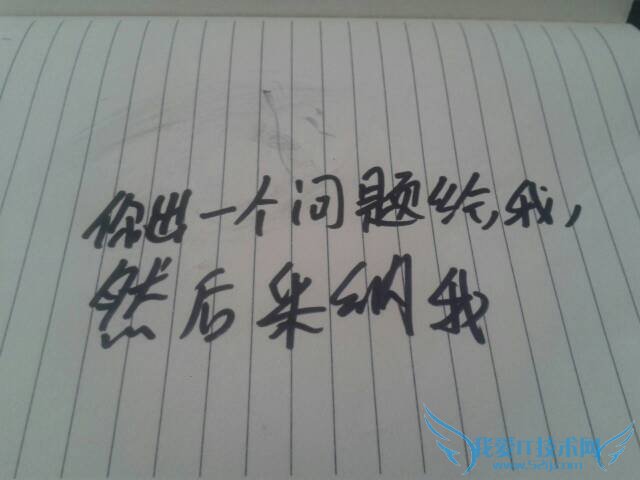 你出一个问题给我，
然后采纳我
我爱IT技术网
www.52ij.com